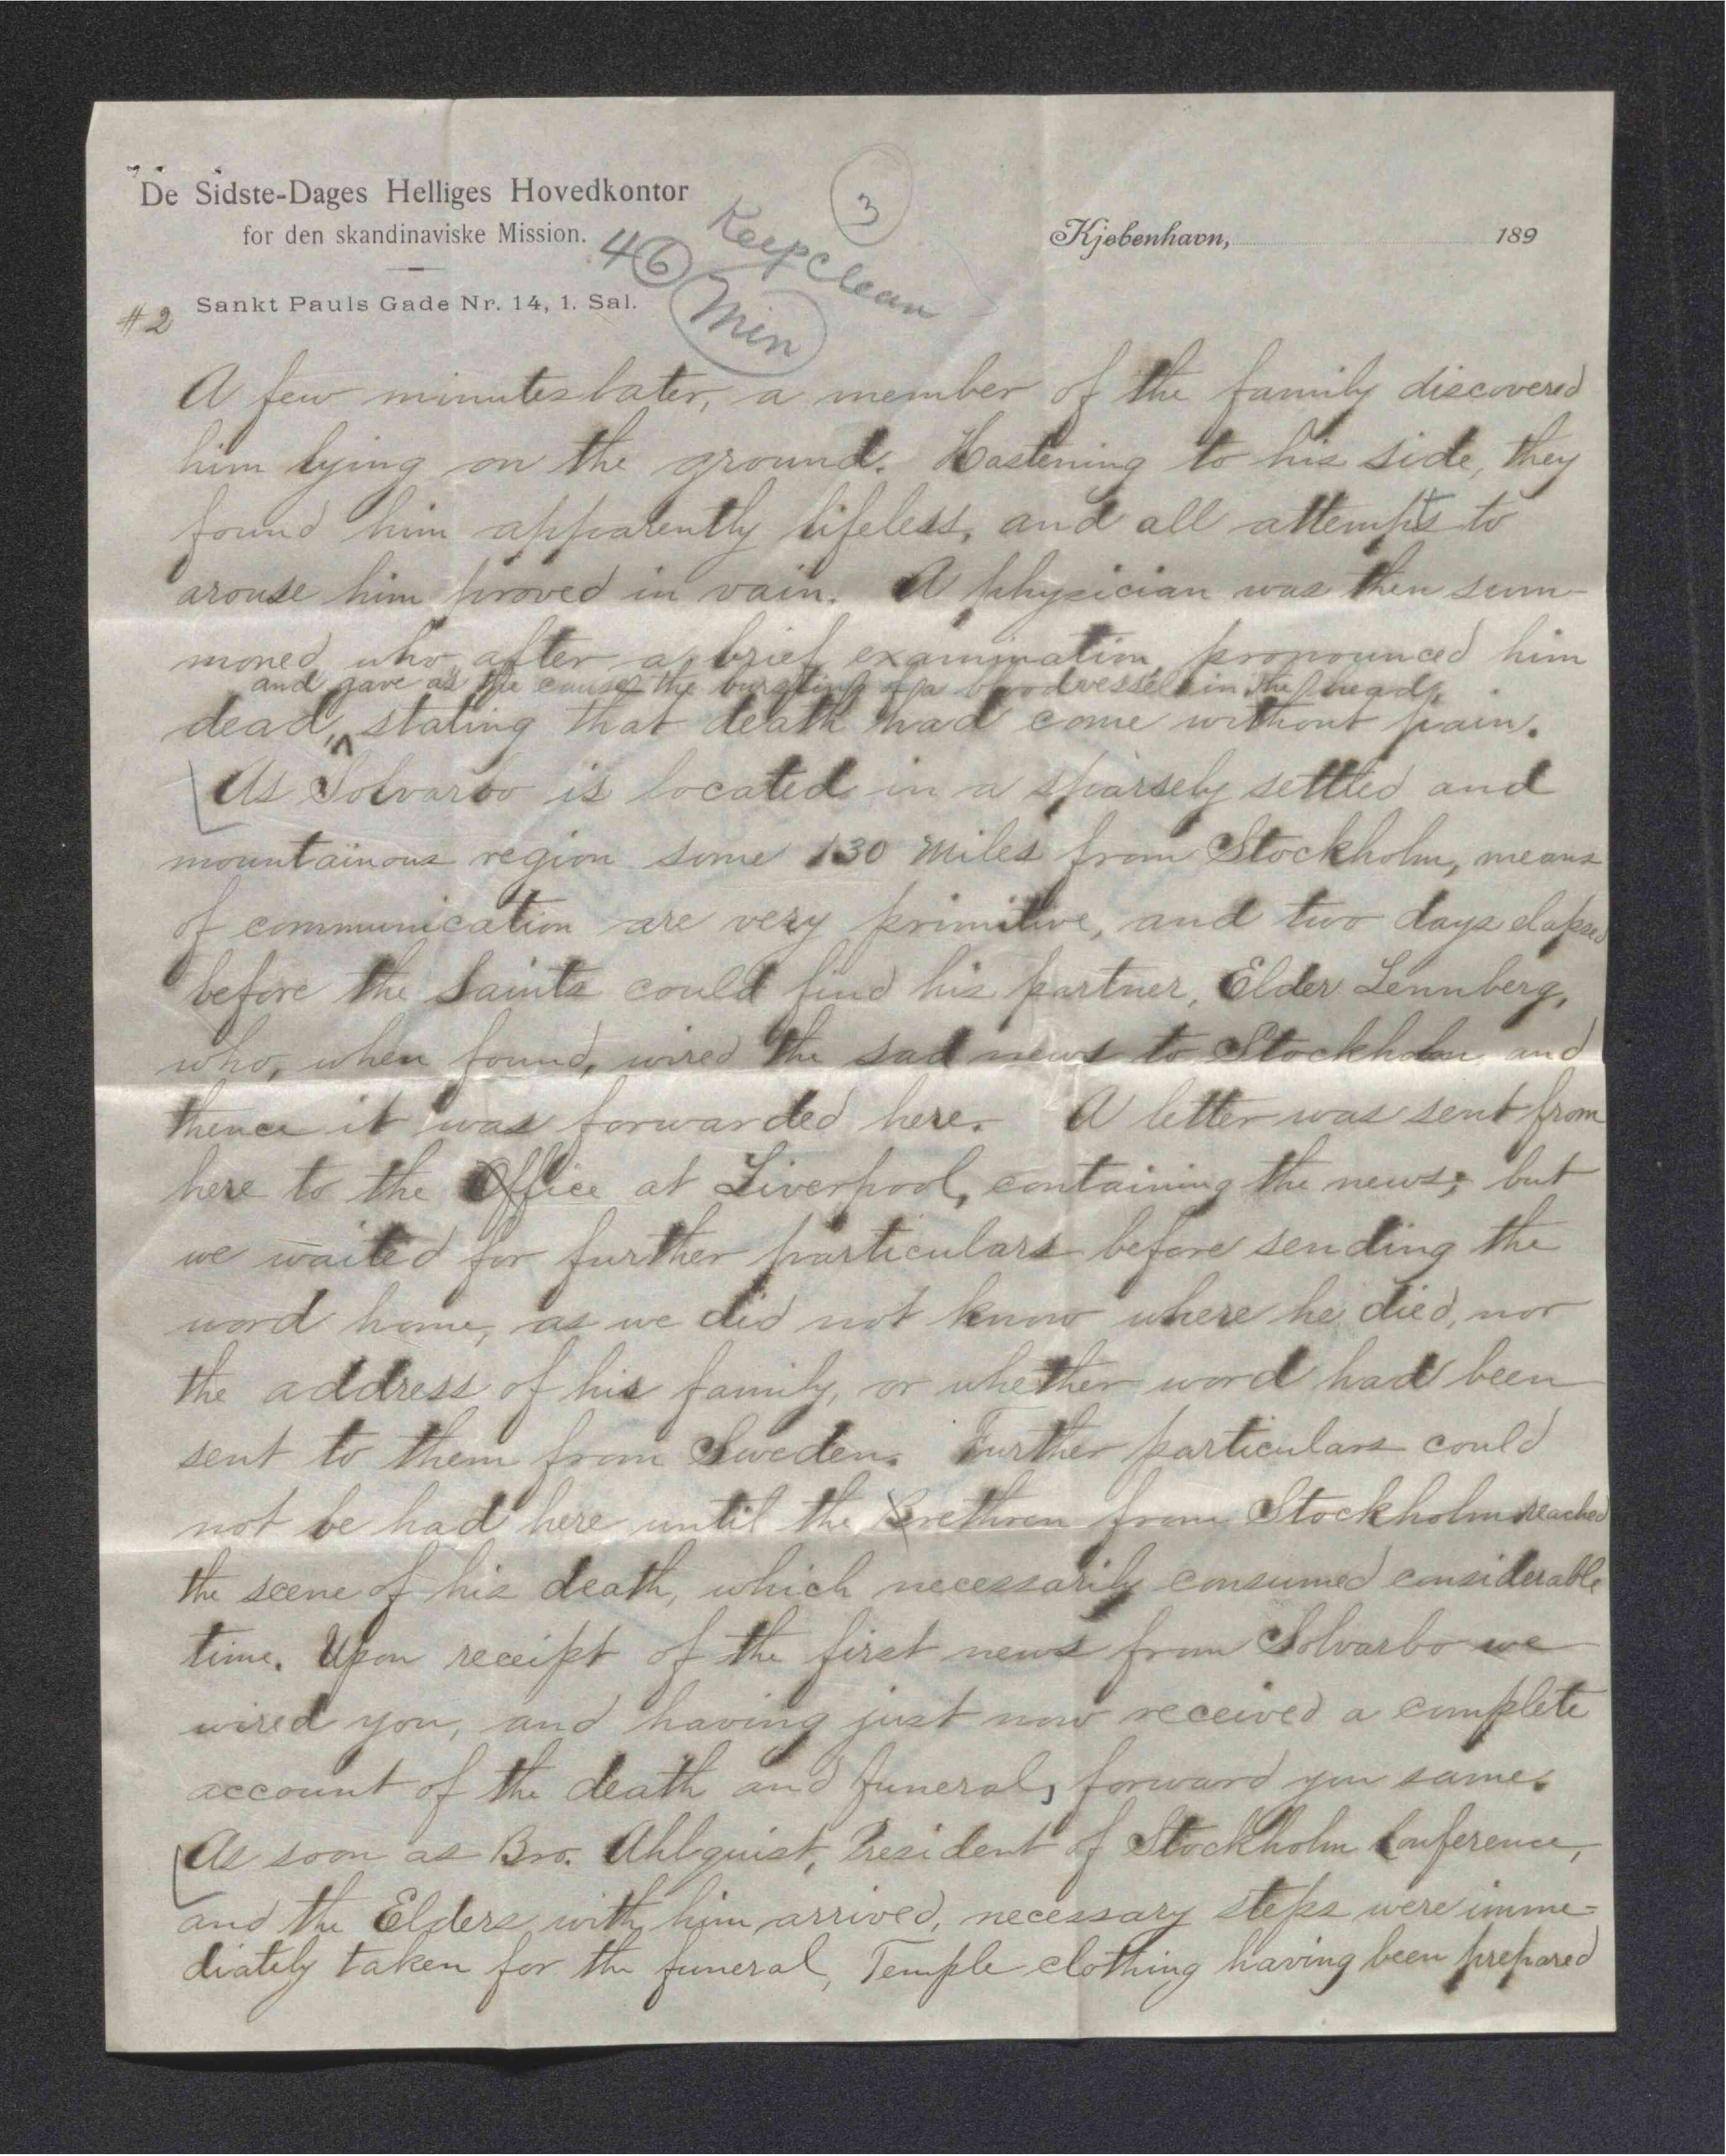 De Sidste-Dages Helliges Hovedkontor
for den skandinaviske Mission.
Sankt Pauls Gade Nr. 14, 1. Sal.
Kjøbenhavn, 189
3
46
Keep clean
Min
#2
A few minutes later, a member of the family discovered
him lying on the ground. Hastening to his side, they
found him apparently lifeless, and all attempts to
arouse him proved in vain. A physician was then sum-
moned who, after a brief examination, pronounced him
and gave as the cause, the bursting of a bloodvessel in the head,
dead, stating that death had come without pain.
As Solvarbo is located in a sparsely settled and
mountainous region some 130 miles from Stockholm, means
of communication are very primitive, and two days elapsed
before the Saints could find his partner, Elder Lennberg,
who, when found, wired the sad news to Stockholm and
thence it was forwarded here. A letter was sent from
here to the Office at Liverpool, containing the news; but
we waited for further particulars before sending the
word home, as we did not know where he died, nor
the address of his family, or whether word had been
sent to them from Sweden. Further particulars could
not be had here until the Brethren from Stockholm reached
the scene of his death, which necessarily consumed considerable
time. Upon receipt of the first news from Solvarbo we
wired you, and having just now received a complete
account of the death and funeral, forward you same.
As soon as Bro. Ahlquist, President of Stockholm Conference,
and the Elders with him arrived, necessary steps were imme=
diately taken for the funeral, Temple clothing having been prepared